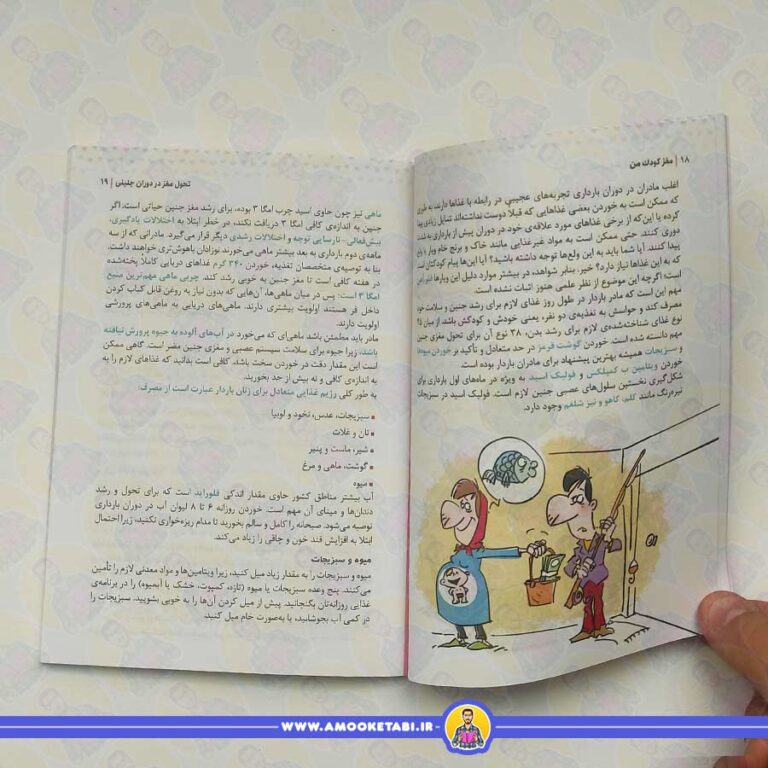 ۱۸ | مغز کودک من
اغلب مادران در دوران بارداری تجربه‌های عجیبی در رابطه با غذاها دارند؛ به طوری
که ممکن است به خوردن بعضی غذاهایی که قبلا دوست نداشته‌اند تمایل زیادی پیدا
کرده یا این‌که از برخی غذاهای مورد علاقه‌ی خود در دوران پیش از بارداری به شدت
دوری کنند. حتی ممکن است به مواد غیرغذایی مانند خاک و برنج خام ویار یا ولع
پیدا کنند. آیا شما باید به این ولع‌ها توجه داشته باشید؟ آیا این‌ها پیام کودکتان است
که به این غذاها نیاز دارد؟ خیر. بنابر شواهد، در بیشتر موارد دلیل این ویارها
است؛ اگرچه این موضوع از نظر علمی هنوز اثبات نشده است.
مهم این است که مادر باردار در طول روز غذای لازم برای رشد جنین و سلامت خود
مصرف کند و حواسش به تغذیه‌ی دو نفر، یعنی خودش و کودکش باشد. از میان ۴۵
نوع غذای شناخته‌شده‌ی لازم برای رشد بدن، ۳۸ نوع آن برای تحول مغزی جنین
مهم دانسته شده است. خوردن گوشت قرمز در حد متعادل و تأکید بر خوردن میوه‌ها
و سبزیجات همیشه بهترین پیشنهاد برای مادران باردار بوده است.
خوردن ویتامین ب کمپلکس و فولیک اسید به ویژه در ماه‌های اول بارداری برای
شکل‌گیری نخستین سلول‌های عصبی جنین لازم است. فولیک اسید در سبزیجات
تیره‌رنگ مانند کلم، کاهو و نیز شلغم وجود دارد.
تحول مغز در دوران جنینی | ۱۹
ماهی نیز چون حاوی اسید چرب امگا ۳ بوده، برای رشد مغز جنین حیاتی است. اگر
جنین به اندازه‌ی کافی امگا ۳ دریافت نکند، در خطر ابتلا به اختلالات یادگیری،
بیش‌فعالی - نارسایی توجه و اختلالات رشدی دیگر قرار می‌گیرد. مادرانی که از سه
ماهه‌ی دوم بارداری به بعد بیشتر ماهی می‌خورند نوزادان باهوش‌تری خواهند داشت.
بنا به توصیه‌ی متخصصان تغذیه، خوردن ۳۴۰ گرم غذاهای دریایی کاملاً پخته‌شده
در هفته کافی است تا مغز جنین به خوبی رشد کند. چربی ماهی مهم‌ترین منبع
امگا ۳ است؛ پس در میان ماهی‌ها، آن‌هایی که بدون نیاز به روغن قابل کباب کردن
داخل فر هستند اولویت بیشتری دارند. ماهی‌های دریایی به ماهی‌های پرورشی
اولویت دارند.
مادر باید مطمئن باشد ماهی‌ای که می‌خورد در آب‌های آلوده به جیوه پرورش نیافته
باشد، زیرا جیوه برای سلامت سیستم عصبی و مغزی جنین مضر است. گاهی ممکن
است این مقدار دقت در خوردن سخت باشد. گاهی کافی است بدانید که غذاهای لازم را به
اندازه‌ی کافی و نه بیش از حد بخورید.
به طور کلی رژیم غذایی متعادل برای زنان باردار عبارت است از مصرف:
▪ سبزیجات، عدس، نخود و لوبیا
▪ نان و غلات
▪ شیر، ماست و پنیر
▪ گوشت، ماهی و مرغ
▪ میوه
آب بیشتر مناطق کشور حاوی مقدار اندکی فلوراید است که برای تحول و رشد
دندان‌ها و مینای آن مهم است. خوردن روزانه ۶ تا ۸ لیوان آب در دوران بارداری
توصیه می‌شود. صبحانه را کامل و سالم بخورید تا مدام ریزه‌خواری نکنید، زیرا احتمال
ابتلا به افزایش قند خون و چاقی را زیاد می‌کند.
میوه و سبزیجات
میوه و سبزیجات را به مقدار زیاد میل کنید، زیرا ویتامین‌ها و مواد معدنی لازم را تأمین
می‌کنند. پنج وعده سبزیجات یا میوه (تازه، کمپوت، خشک یا آبمیوه) را در برنامه‌ی
غذایی روزانه‌تان بگنجانید. پیش از میل کردن آن‌ها را به خوبی بشویید. سبزیجات را
در کمی آب بجوشانید، یا به‌صورت خام میل کنید.
WWW.AMOOKETABI.IR